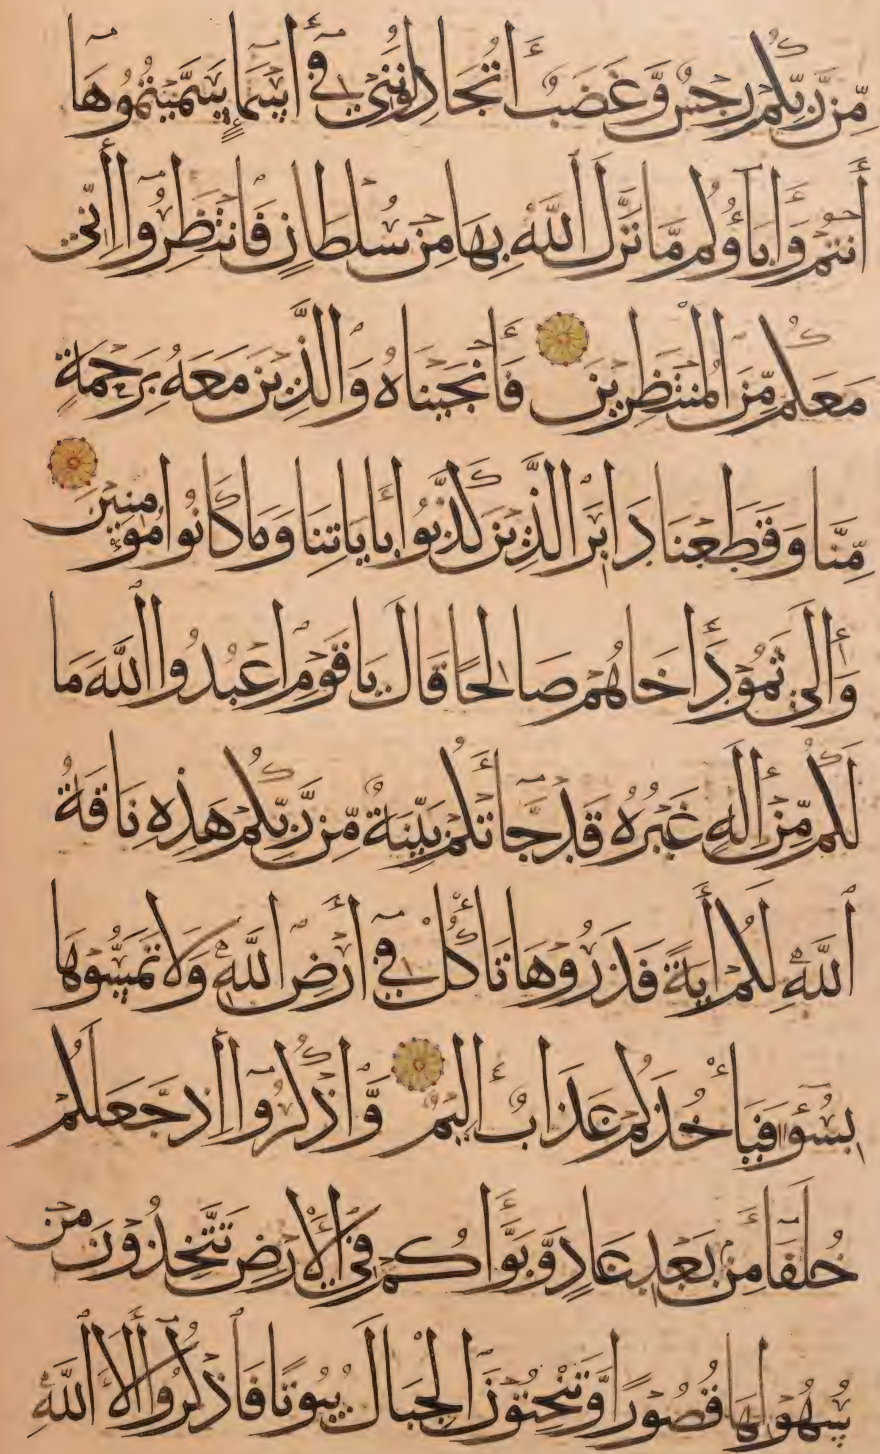 مِّن رَّبِّكُمْ رِجْسٌ وَّغَضَبٌ أَتُجَادِلُونَنِي فِي أَسْمَآءٍ سَمَّيْتُمُوهَا
أَنتُمْ وَءَابَآؤُكُم مَّا نَزَّلَ اللَّهُ بِهَا مِنْ سُلْطَانٍ فَانتَظِرُوا إِنِّي
مَعَكُم مِّنَ الْمُنتَظِرِينَ فَأَنجَيْنَاهُ وَالَّذِينَ مَعَهُ بِرَحْمَةٍ
مِّنَّا وَقَطَعْنَا دَابِرَ الَّذِينَ كَذَّبُوا بِأَيَاتِنَا وَمَا كَانُوا مُؤمِنِينَ
وَإِلَى ثَمُودَ أَخَاهُمْ صَالِحًا قَالَ يَا قَوْمِ اعْبُدُوا اللَّهَ مَا
لَكُم مِّنْ إِلَهٍ غَيْرُهُ قَدْ جَآءَتْكُم بَيِّنَةٌ مِّن رَّبِّكُمْ هَذِهِ نَاقَةُ
اللَّهِ لَكُمْ أَيَةً فَذَرُوهَا تَأْكُلْ فِي أَرْضِ اللَّهِ وَلَا تَمَسُّوهَا
بِسُوءٍ فَيَأْخُذَكُمْ عَذَابٌ أَلِيمٌ وَّاذْكُرُوا إِذْ جَعَلَكُمْ
خُلَفَآءَ مِنْ بَعْدِ عَادٍ وَّبَوَّأَكُمْ فِي الْأَرْضِ تَتَّخِذُونَ مِنْ
سُهُولِهَا قُصُورًا وَّتَنْحِتُونَ الْجِبَالَ بُيُوتًا فَاذْكُرُوا أَلَآءَ اللَّهِ